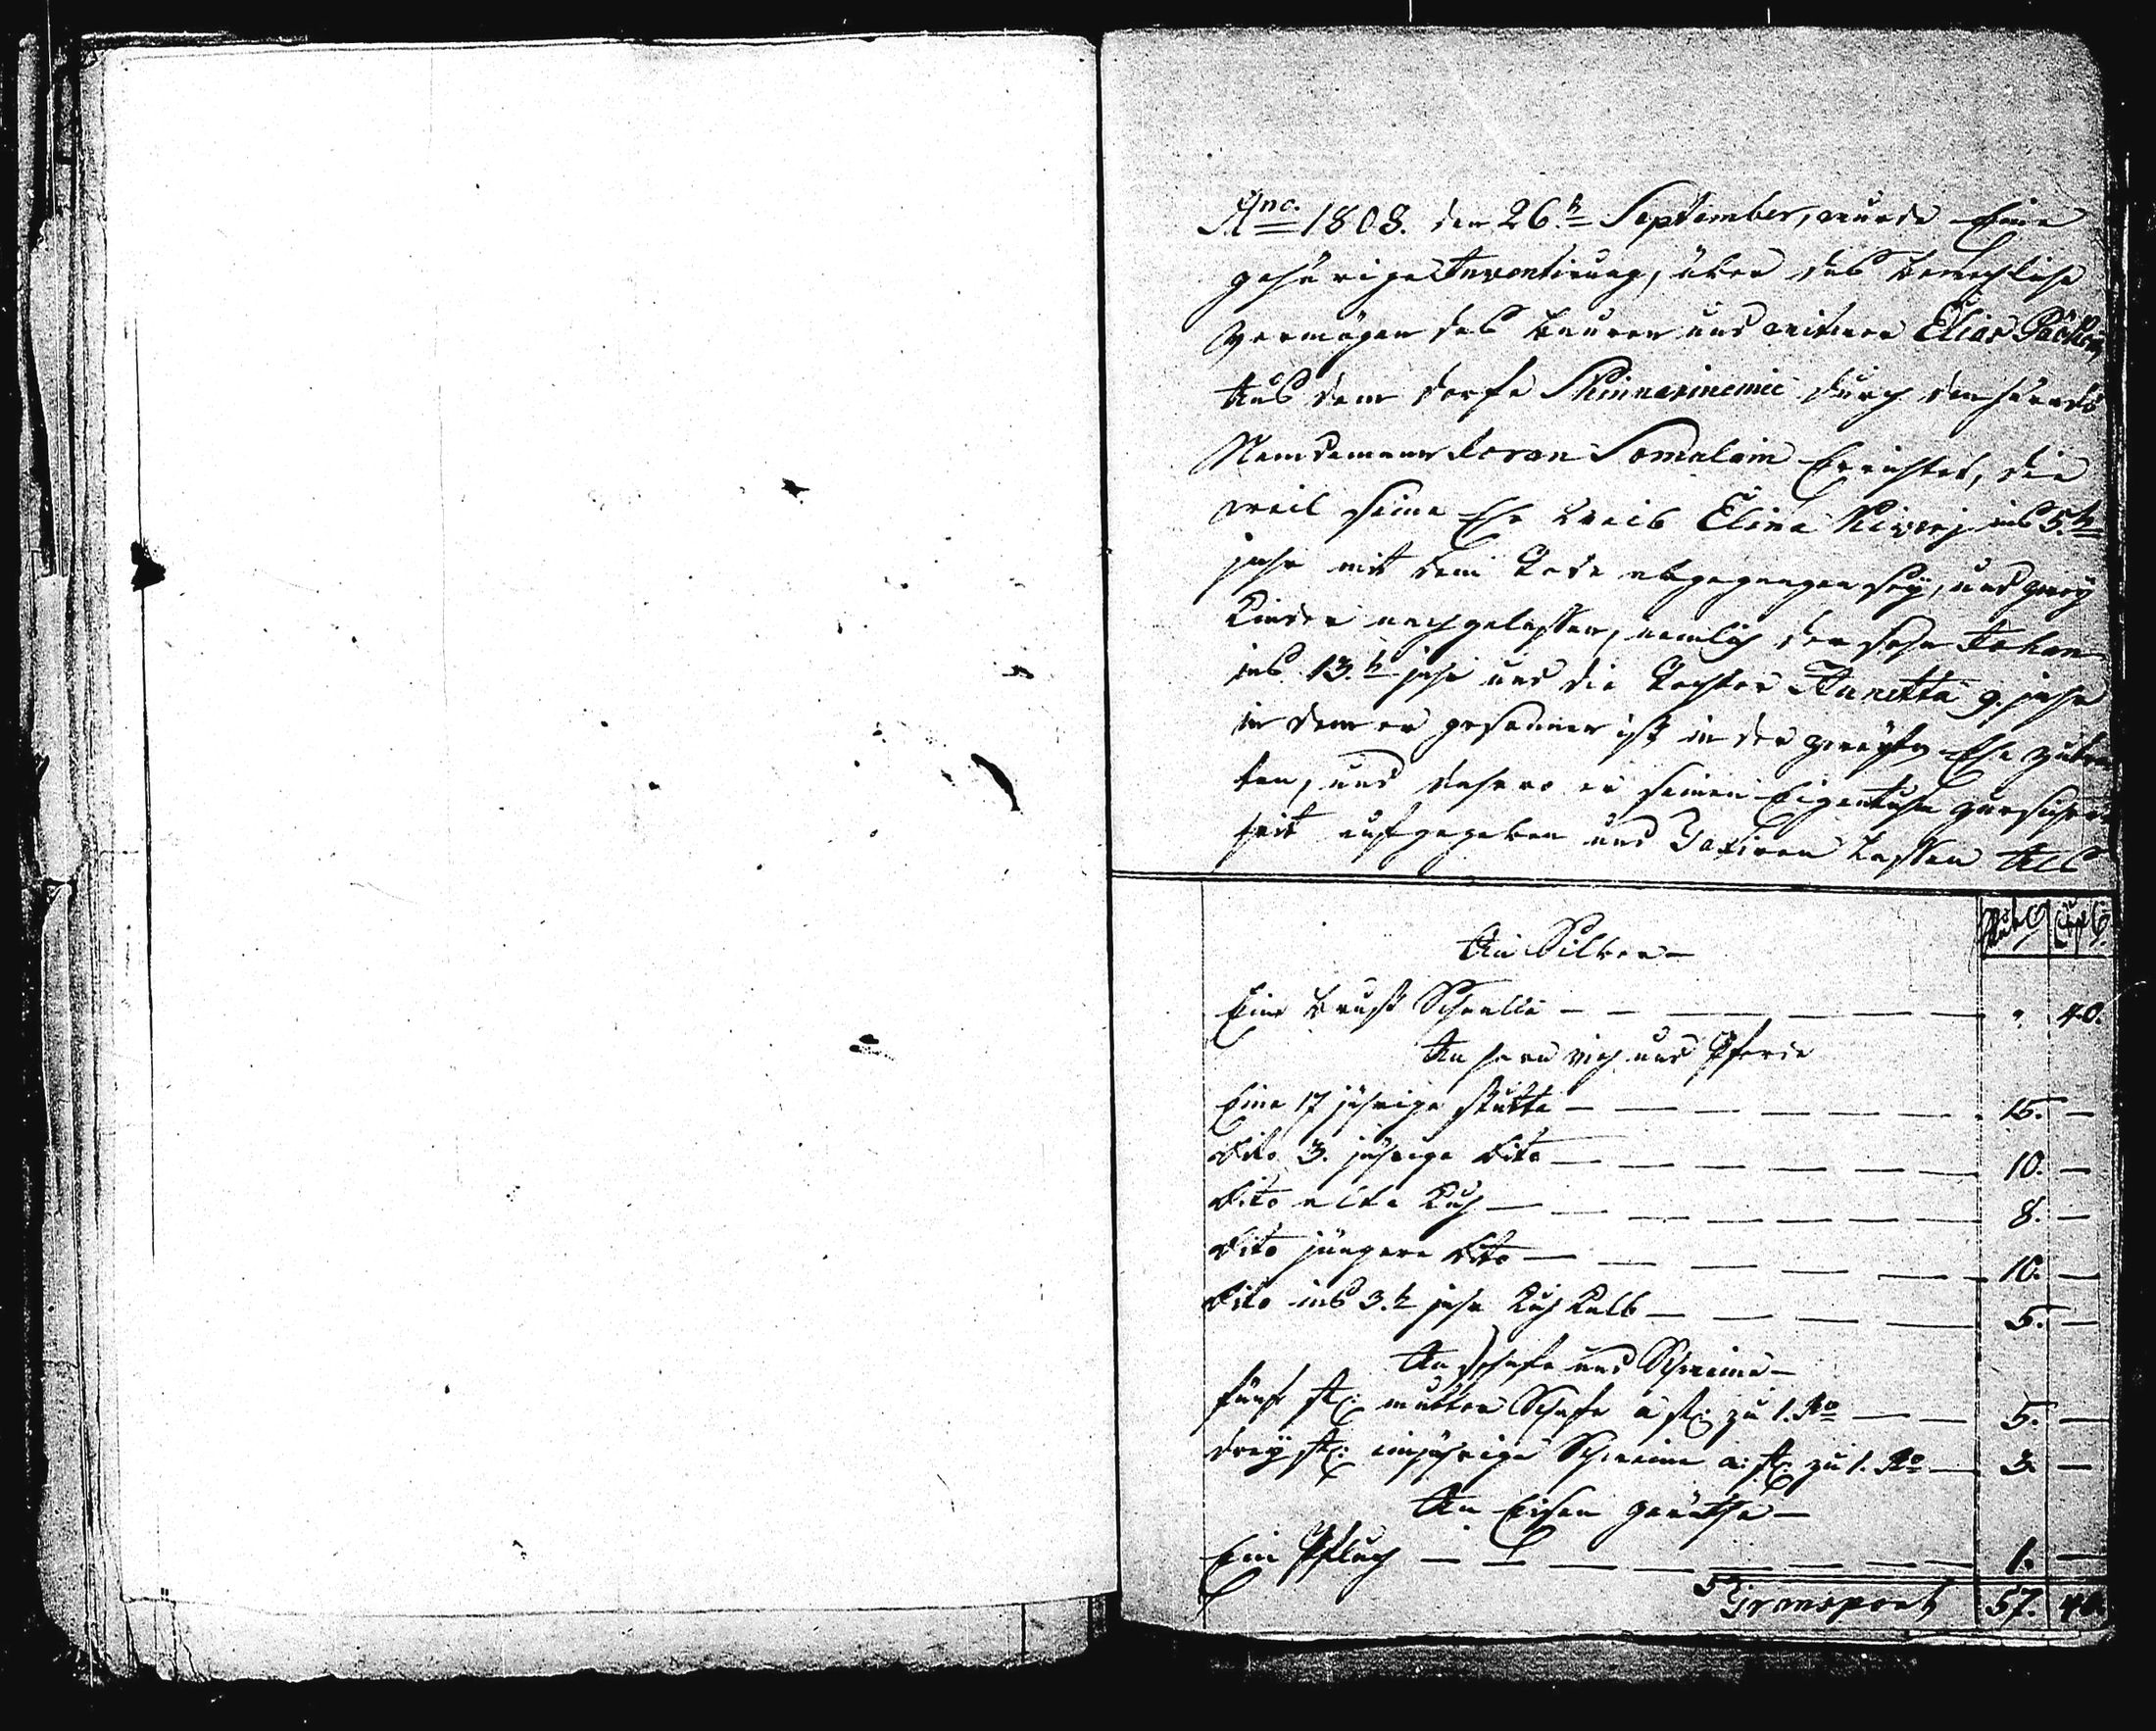 Ano. 1808. den 26.n September, wurde Eine
gehörige Inventirung, über das bewegliche
Vermögen des Bauren und witwer Elias Pöckön,
Aus dem Dorfe Skinnarinemie durch den
Nemdemann Soran Somalain Errichtet, die
weil seine Ehe Weib Elina Kiverj ins 5.te
jahr mit dem Tode abgegangen seÿ, und zweÿ
Kinder nachgelassen, nemlich der sohn Johan
ins 13.te jahr und die Tochter Annetta 9. jahr
in dem er gesonnen ist in der zweÿte Ehe zutre
ten, und dahero er seinen Eigentuhm zursicher
heit aufgegeben und Taxiren lassen Als
Rub. Cop.
An Silber —
Eine brust Schnalle — „ 40.
An horn vieh und Pferde
Eine 17 jährige stutte — 15. —
Dito 3. jährige Dito — 10. —
Dito alte Kuh — 8. —
Dito jüngere Dito — 10. —
Dito ins 3.te jahr Kuh Kalb — 5. —
An Schafe und Schweine —
fünf st: mutter Schafe a st: zu 1. Ro — 5. —
dreÿ st: einjährige Schweine a: st: zu 1. Ro — 3. —
An Eisen geräthe —
Ein Pfluch — 1. —
Transport 57. 40.